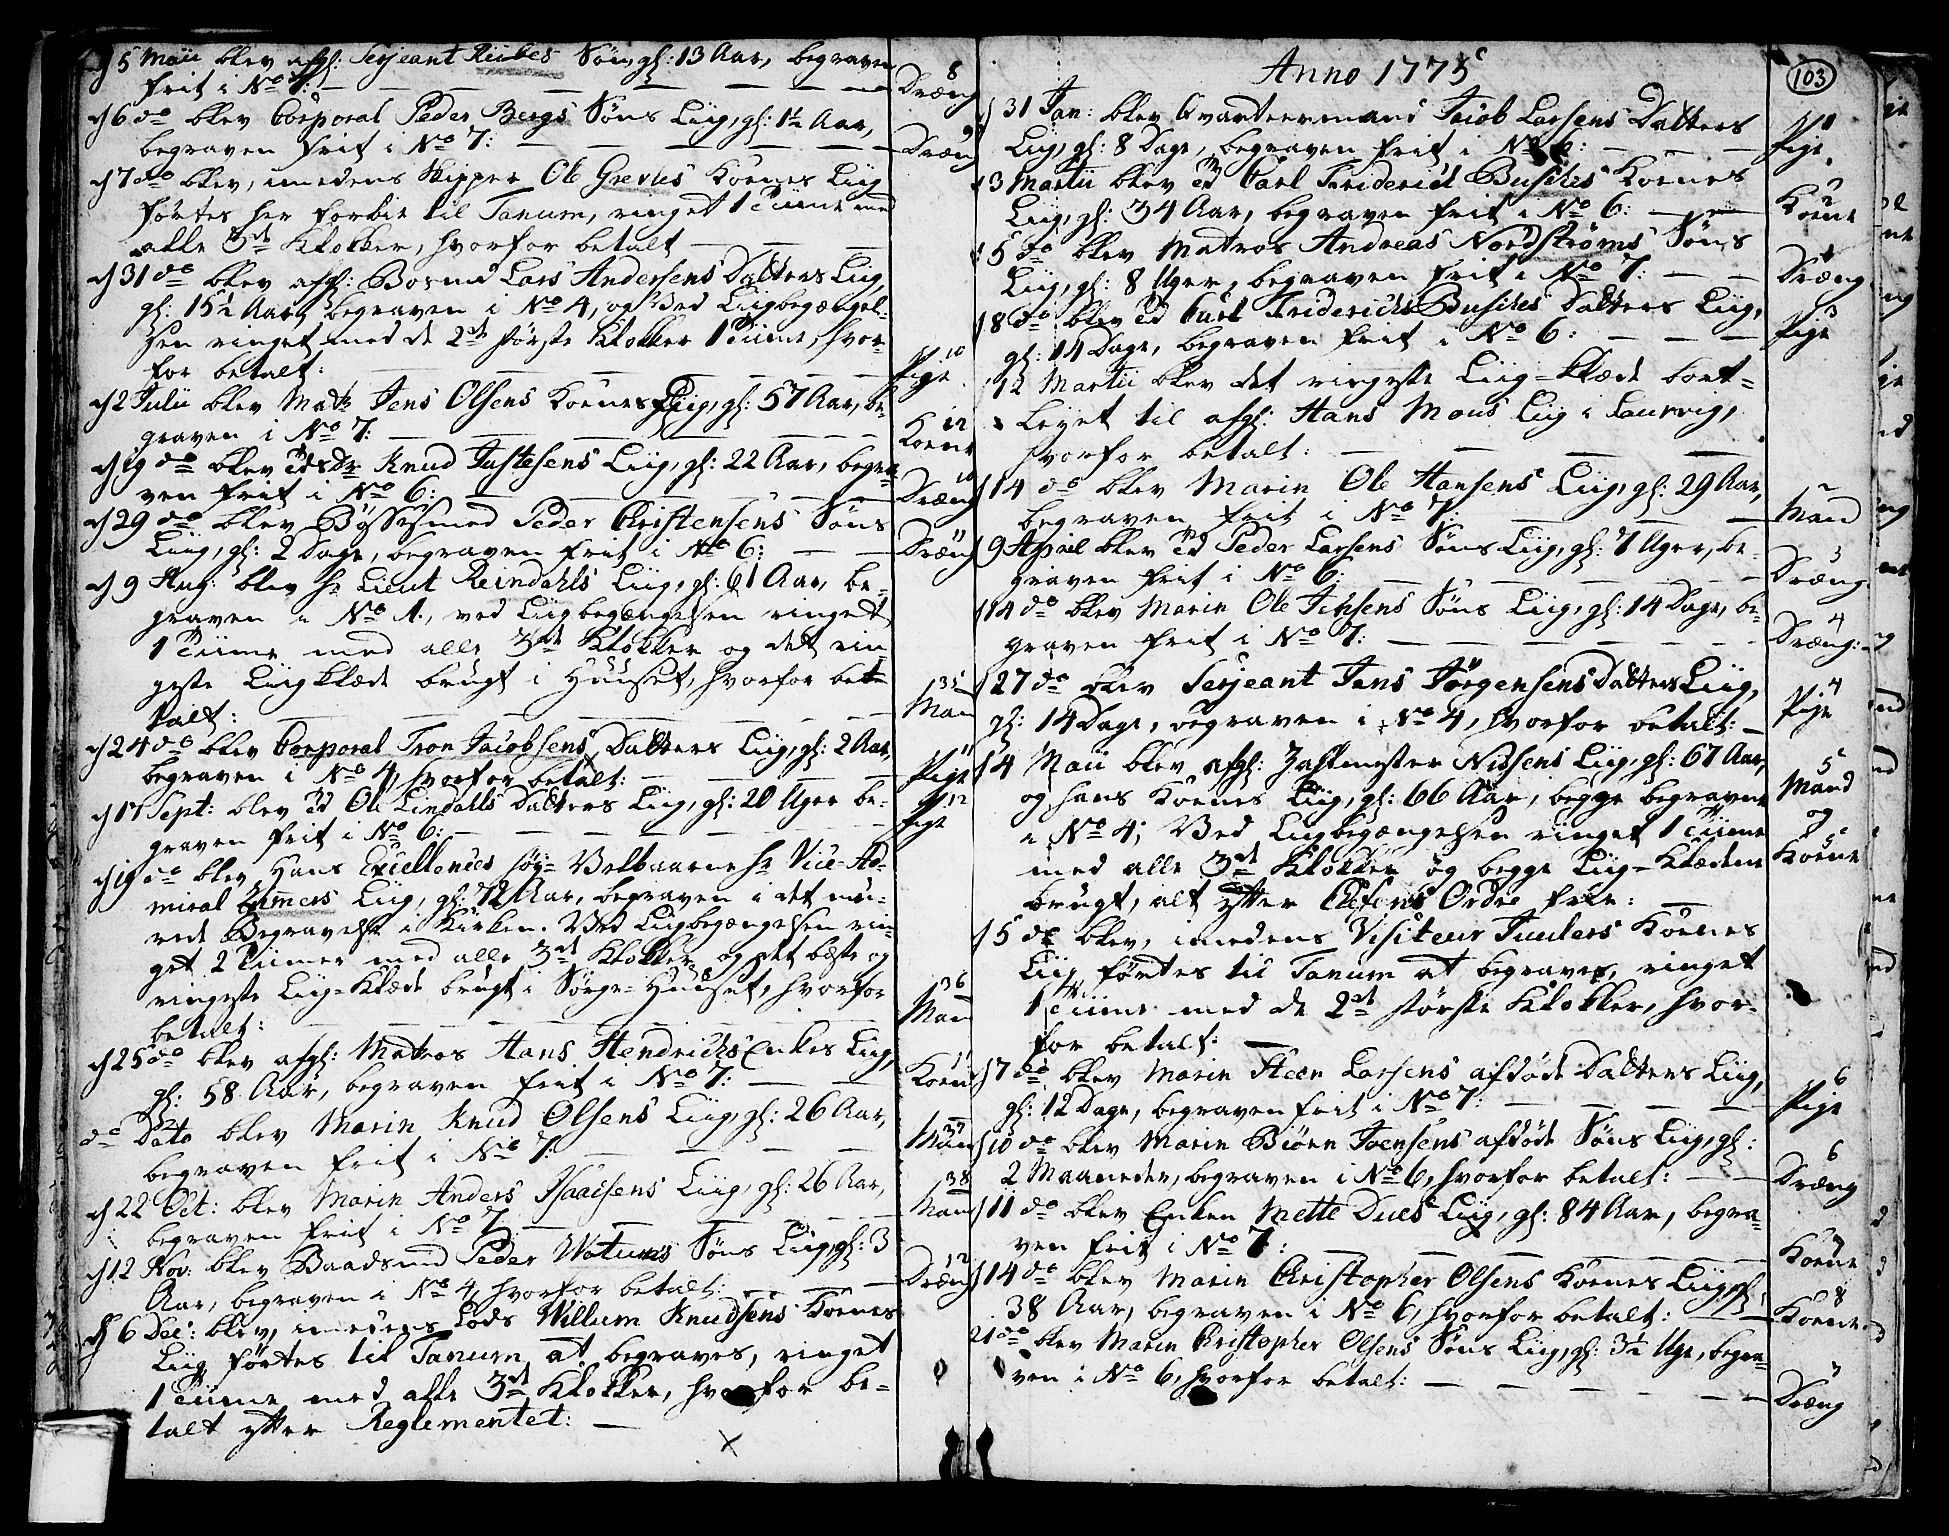 d 5 Maii blev afg: Serjeant Riibes Søn gl: 13 Aar, begraven
frit i No 7: 8 Dræng
d 6 do blev Corporal Peder Bergs Søns Liig, gl: 1½ Aar,
begraven frit i No 7: 9 Dræng
d 7 do blev, imedens Skipper Ole Greves Koenes Liig
førtes her forbie til Tanum, ringet 1 Tiime med
alle 3de Klokker, hvorfor betalt
d 31 do blev afg: Bosmd Lars Andersens Datters Liig,
gl: 15½ Aar, begraven i No 4, og Ved Liigbegængel-
sen ringet med de 2de største Klokker 1 Tiime, hvor-
for betalt: 10 Pige
d 2 Julii blev Matr Jens Olsens Koenes Liig, gl: 57 Aar, be-
graven i No 7: 12 Koene
d 19 do blev Knud Justesens Liig, gl: 22 Aar, begra-
ven frit i No 6: 10 Dræng
d 29 do blev Bøssesmed Peder Christensens Søns
Liig, gl: 2 Dage, begraven frit i No 6: 11 Dræng
d 9 Aug: blev Hr Lieut Reindahls Liig, gl: 61 Aar, be-
graven i No 1., ved Liigbegængelsen ringet
1 Tiime med alle 3de Klokker og det rin-
geste Liigklæde brugt i Huuset, hvorfor be-
talt: 35 Man
d 24 do blev Corporal Tron Jacobsens Datters Liig, gl: 2 Aar,
begraven i No 4, hvorfor betalt: 11 Pige
d 17 Sept: blev Ole Lindalls Datters Liig, gl: 20 Uger be-
graven frit i No 6: 12 Pige
d 19 do blev Hans Excellences Høy-Velbaarne Hr Vice-Ad-
miral Liig, gl: 72 Aar, begraven i det mu-
rede Begravelse i Kirken. Ved Liigbegængelsen rin-
get 2 Tiimer med alle 3de Klokker og det bæste og
ringeste Liig-Klæde brugt i Sørge-Huuset, hvorfor
betalt: 36 Man
d 25 do blev afg: Matros Hans Hendrichs Enkes Liig,
gl: 58 Aar, begraven frit i No 7: 11 Koene
do Dato blev Marin Knud Olsens Liig, gl: 26 Aar,
begraven frit i No 7: 37 Man
d 22 Oct: blev Marin Anders Isaacsens Liig, gl: 26 Aar,
begraven frit i No 7 38 Man
d 12 Nov: blev Baadsmd Peder Wotums Søns Liig, gl: 3
Aar, begraven i No 4, hvorfor betalt: 12 Dræng
d 6 Dec: blev, imedens Lods Willum Knudsens Koenes
Liig førtes til Tanum at begraves, ringet
1 Tiime med alle 3de Klokker, hvorfor be-
talt efter Reglementet:
Anno 1775
103
d 31 Jan: blev Qvarteermand Jacob Larsens Datters
Liig, gl: 8 Dage, begraven frit i No 6: 1 Pige
d 3 Martii blev Carl Friderich Busches Koenes
Liig, gl: 34 Aar, begraven frit i No 6: 2 Koene
d 5 do blev Matros Andreas Nordstrøms Søns
Liig, gl: 8 Uger, begraven frit i No 7: 1 Dræng
d 8 do blev Carl Friderichs Busches Datters Liig,
gl: 14 Dage, begraven frit i No 6: 3 Pige
d 12 Martii blev det ringeste Liig-Klæde bort-
Leyet til afg: Hans Mons Liig i Laurvig,
hvorfor betalt:
d 14 do blev Marin Ole Hansens Liig, gl: 29 Aar,
begraven frit i No 7: 2 Mand
d 9 April blev Peder Larsens Søns Liig, gl: 7 Uger, be-
graven frit i No 6: 3 Dræng
d 14 do blev Marin Ole Jensens Søns Liig, gl: 14 Dage, be-
graven frit i No 7: 4 Dræng:
d 27 do blev Serjeant Jens Jørgensens Datters Liig,
gl: 14 Dage, begraven i No 4, hvorfor betalt: 4 Pige
d 4 Maii blev afg: Zahlmester Nilsens Liig, gl: 67 Aar,
og hans Koenes Liig, gl: 66 Aar, begge begravne
i No 4; Ved Liigbegængelsen ringet 1 Tiime
med alle 3de Klokker og begge Liig-Klædene
brugt, alt efter Chefens Ordre frie: 5 Mand og 5 Koene
d 5 do blev, imedens Visiteur Juulers Koenes
Liig førtes til Tanum at begraves, ringet
1 Tiime med de 2de største Klokker, hvor-
for betalt:
d 7 do blev Marin Steen Larsens afdøde Datters Liig,
gl: 12 Dage, begraven frit i No 7: 6 Pige
d 10 do blev Marin Biørn Joensens afdøde Søns Liig, gl:
2 Maaneder, begraven i No 6, hvorfor betalt: 6 Dræng
d 11 do blev Enken Mette Dues Liig, gl: 84 Aar, begra-
ven frit i No 7: 7 Koene
d 14 do blev Marin Christopher Olsens Koenes Liig, gl:
38 Aar, begraven i No 6, hvorfor betalt: 8 Koene
21 do blev Marin Christopher Olsens Søns Liig, gl: 3½ Uge, begra-
ven i No 6, hvorfor betalt: 7 Dræng